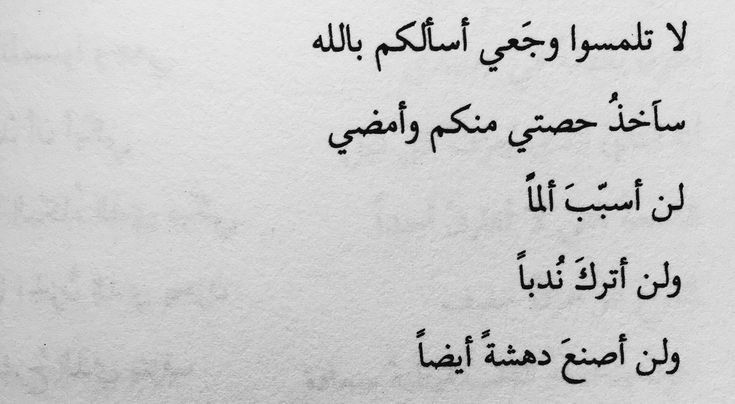 لا تلمسوا وجَعي أسألكم بالله
سآخذُ حصتي منكم وأمضي
لن أسبّبَ ألماً
ولن أتركَ نُدباً
ولن أصنعَ دهشةً أيضاً